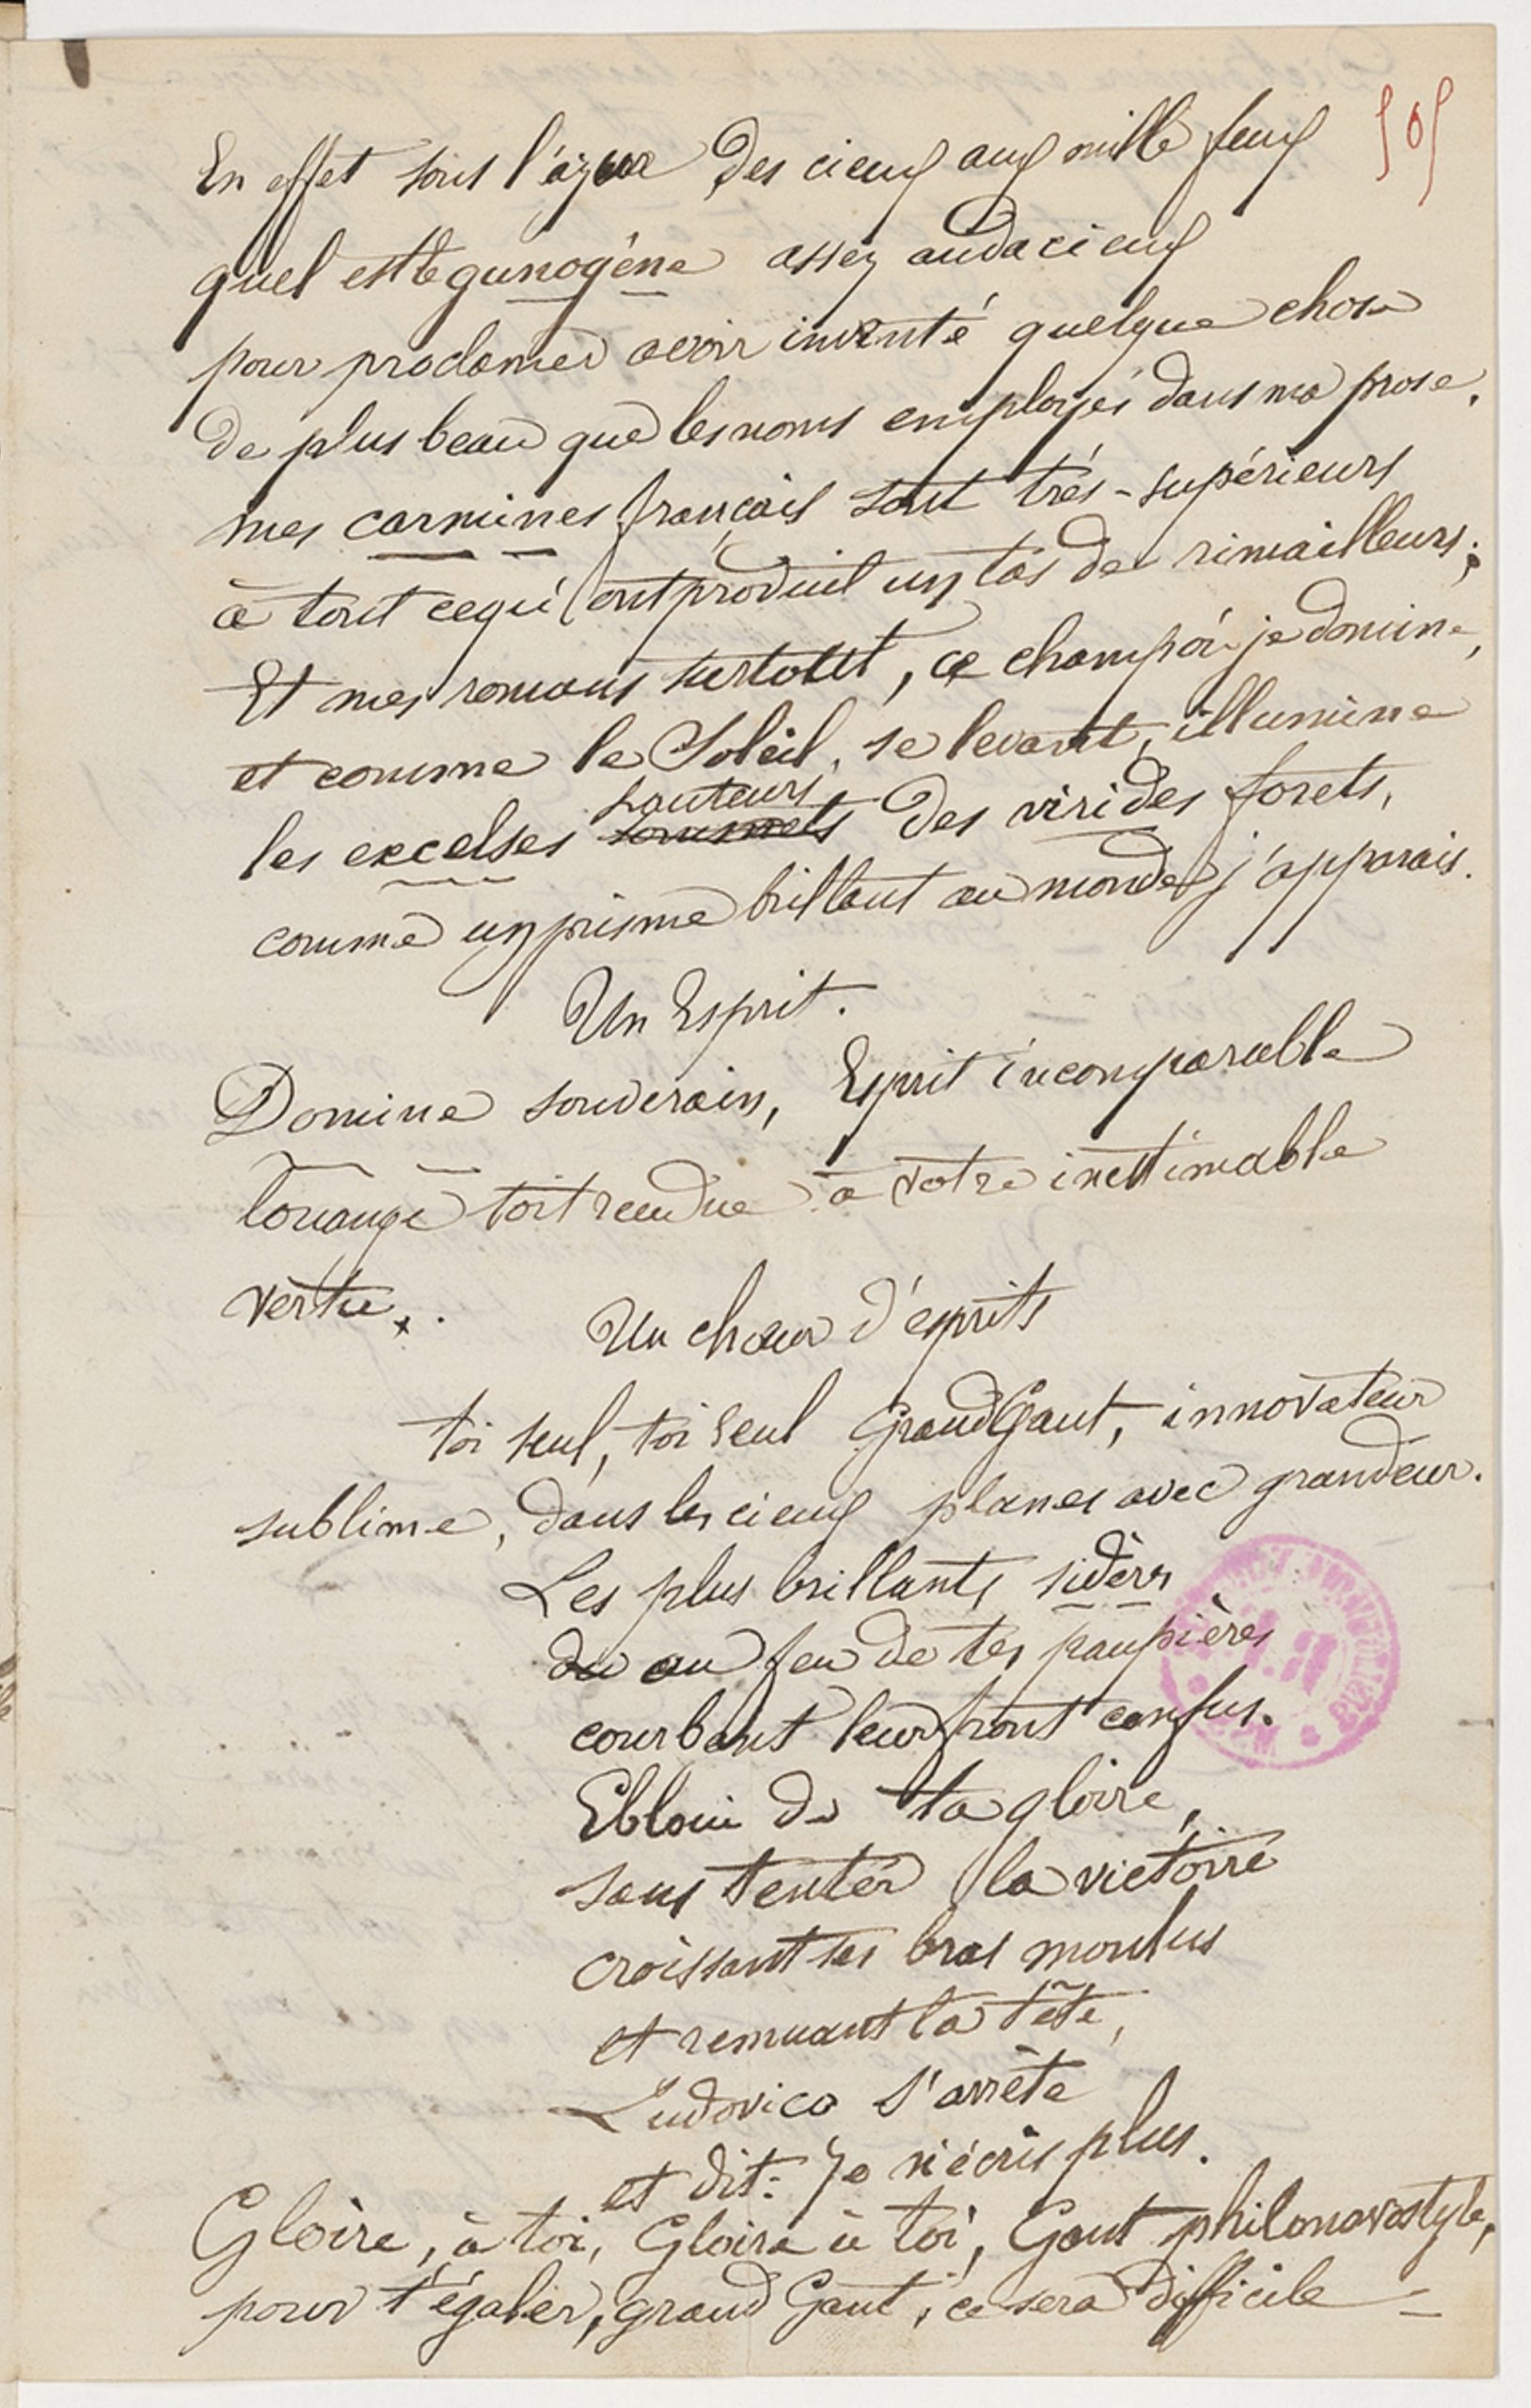 505
En effet sous l'azur des cieux aux mille feux
quel est le gunogène assez audacieux
pour proclamer avoir inventé quelque chose
de plus beau que les noms employés dans ma prose.
mes carmines français sont très-supérieurs
à tout ce qu'ont produit un tas de rimailleurs;
Et mes romans surtout, ce champ où je domine,
et comme le Soleil, se levant, illumine
les excelses sommets hauteurs des virides forets,
comme un prisme brillant au monde j'apparais.
Un Esprit.
Domine souverain, Esprit incomparable
louange soit rendue à votre inestimable
vertu.
Un chœur d'esprits
toi seul, toi seul Grand Gaut, innovateur
sublime, dans les cieux planes avec grandeur.
Les plus brillants sidères
du au feu de tes paupières
courbent leur front confus.
Ebloui de ta gloire,
sans tenter la victoire
croissant ses bras moulus
et remuant la tête,
Ludovico s'arrête
et dit: Je n'écris plus.
Gloire, à toi, Gloire à toi, Gaut philonovostyle,
pour t'égaler, grand Gaut, ce sera difficile -